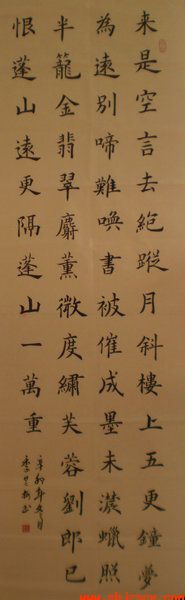 来是空言去絕蹤月斜樓上五更鐘夢
為遠別啼難喚書被催成墨未濃蠟照
半籠金翡翠麝薰微度繡芙蓉劉郎已
恨蓬山遠更隔蓬山一萬重
辛卯年 月